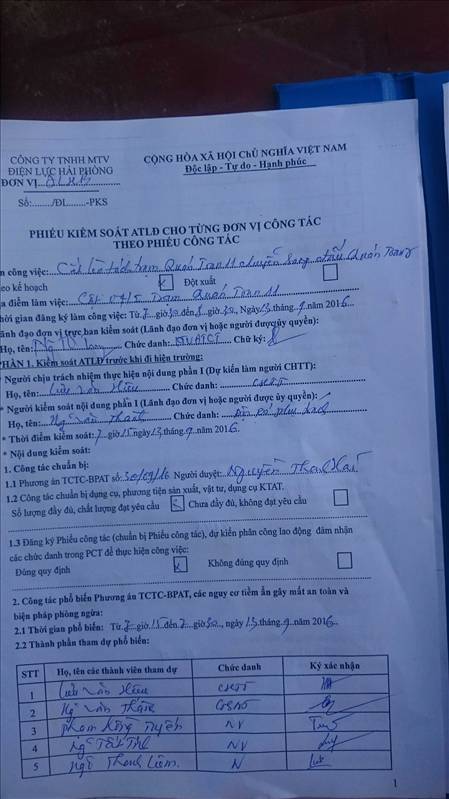 CÔNG TY TNHH MTV
ĐIỆN LỰC HẢI PHÒNG
ĐƠN VỊ
Số:......./ĐL.......-PKS
CỘNG HÒA XÃ HỘI CHỦ NGHĨA VIỆT NAM
Độc lập - Tự do - Hạnh phúc
PHIẾU KIỂM SOÁT ATLĐ CHO TỪNG ĐƠN VỊ CÔNG TÁC
THEO PHIẾU CÔNG TÁC
n công việc: trạm Quán Toan 11 chuyển sang Quán Toan
eo kế hoạch Đột xuất
a điểm làm việc: Trạm Quán Toan 11
hời gian đăng ký làm việc: Từ 7 giờ 30 đến giờ 30, Ngày 13 tháng 9 năm 2016
ãnh đạo đơn vị trực ban kiểm soát (Lãnh đạo đơn vị hoặc người được ủy quyền):
Họ, tên: Chức danh: Chữ ký:
PHẦN 1. Kiểm soát ATLĐ trước khi đi hiện trường:
* Người chịu trách nhiệm thực hiện nội dung phần I (Dự kiến làm người CHTT):
Họ, tên: Lưu Văn Hiếu Chức danh: CHTT
* Người kiểm soát nội dung phần I (Lãnh đạo đơn vị hoặc người được ủy quyền):
Họ, tên: Chức danh:
* Thời điểm kiểm soát: 7 giờ 15 ngày 13 tháng 9 năm 2016
* Nội dung kiểm soát:
1. Công tác chuẩn bị:
1.1 Phương án TCTC-BPAT số: 30/09/16 Người duyệt: Nguyễn
1.2 Công tác chuẩn bị dụng cụ, phương tiện sản xuất, vật tư, dụng cụ KTAT.
Số lượng đầy đủ, chất lượng đạt yêu cầu Chưa đầy đủ, không đạt yêu cầu
1.3 Đăng ký Phiếu công tác (chuẩn bị Phiếu công tác), dự kiến phân công lao động đảm nhận
các chức danh trong PCT để thực hiện công việc:
Đúng quy định Không đúng quy định
2. Công tác phổ biến Phương án TCTC-BPAT, các nguy cơ tiềm ẩn gây mất an toàn và
biện pháp phòng ngừa:
2.1 Thời gian phổ biến: Từ 7 giờ 15 đến 7 giờ 30, ngày 13 tháng 9 năm 2016
2.2 Thành phần tham dự phổ biến:
STT Họ, tên các thành viên tham dự Chức danh Ký xác nhận
1 Lưu Văn Hiếu CHTT
2
3 Phạm Hồng NV
4 NV
5 Ngô Thanh Liêm N
1